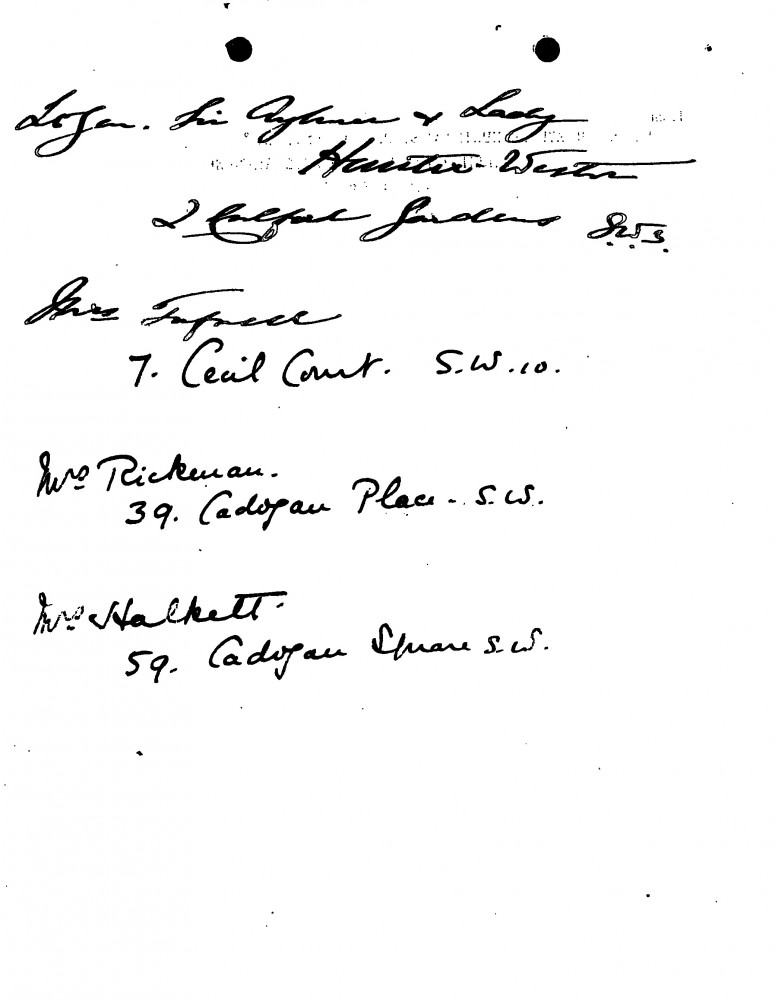 Logan. Sir Aylmer & Lady
Hunter-Weston
2 Culford Gardens S.W.3.
Mrs Tufnell
7. Cecil Court. S.W.10.
Mrs Rickman.
39. Cadogan Place - S.W.
Mrs Halkett.
59. Cadogan Square S.W.